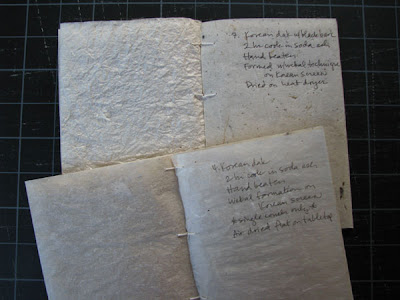 Korean dak w/black bark
2 hr cook in soda ash
Hand beaten
Formed w/webal technique
on Korean screen
Dried on heat dryer
4. Korean dak
2 hr cook in soda ash
Hand beaten
Webal formation on
Korean screen
single couch only
Air dried flat on tabletop